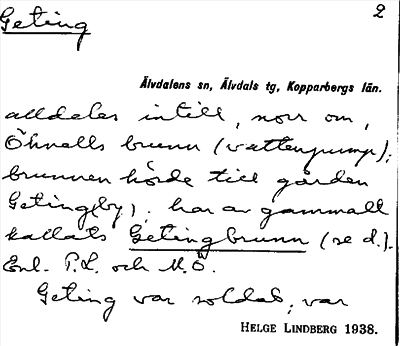 Geting 2
Älvdalens sn, Älvdals tg, Kopparbergs län.
alldeles intill, norr om,
Öhnells brunn (vattenpump);
brunnen hörde till gården
Geting(by); har av gammalt
kallats Getingbrunn (se d.).
Enl. P.L. och M.Ö.
Geting var soldat; var
HELGE LINDBERG 1938.